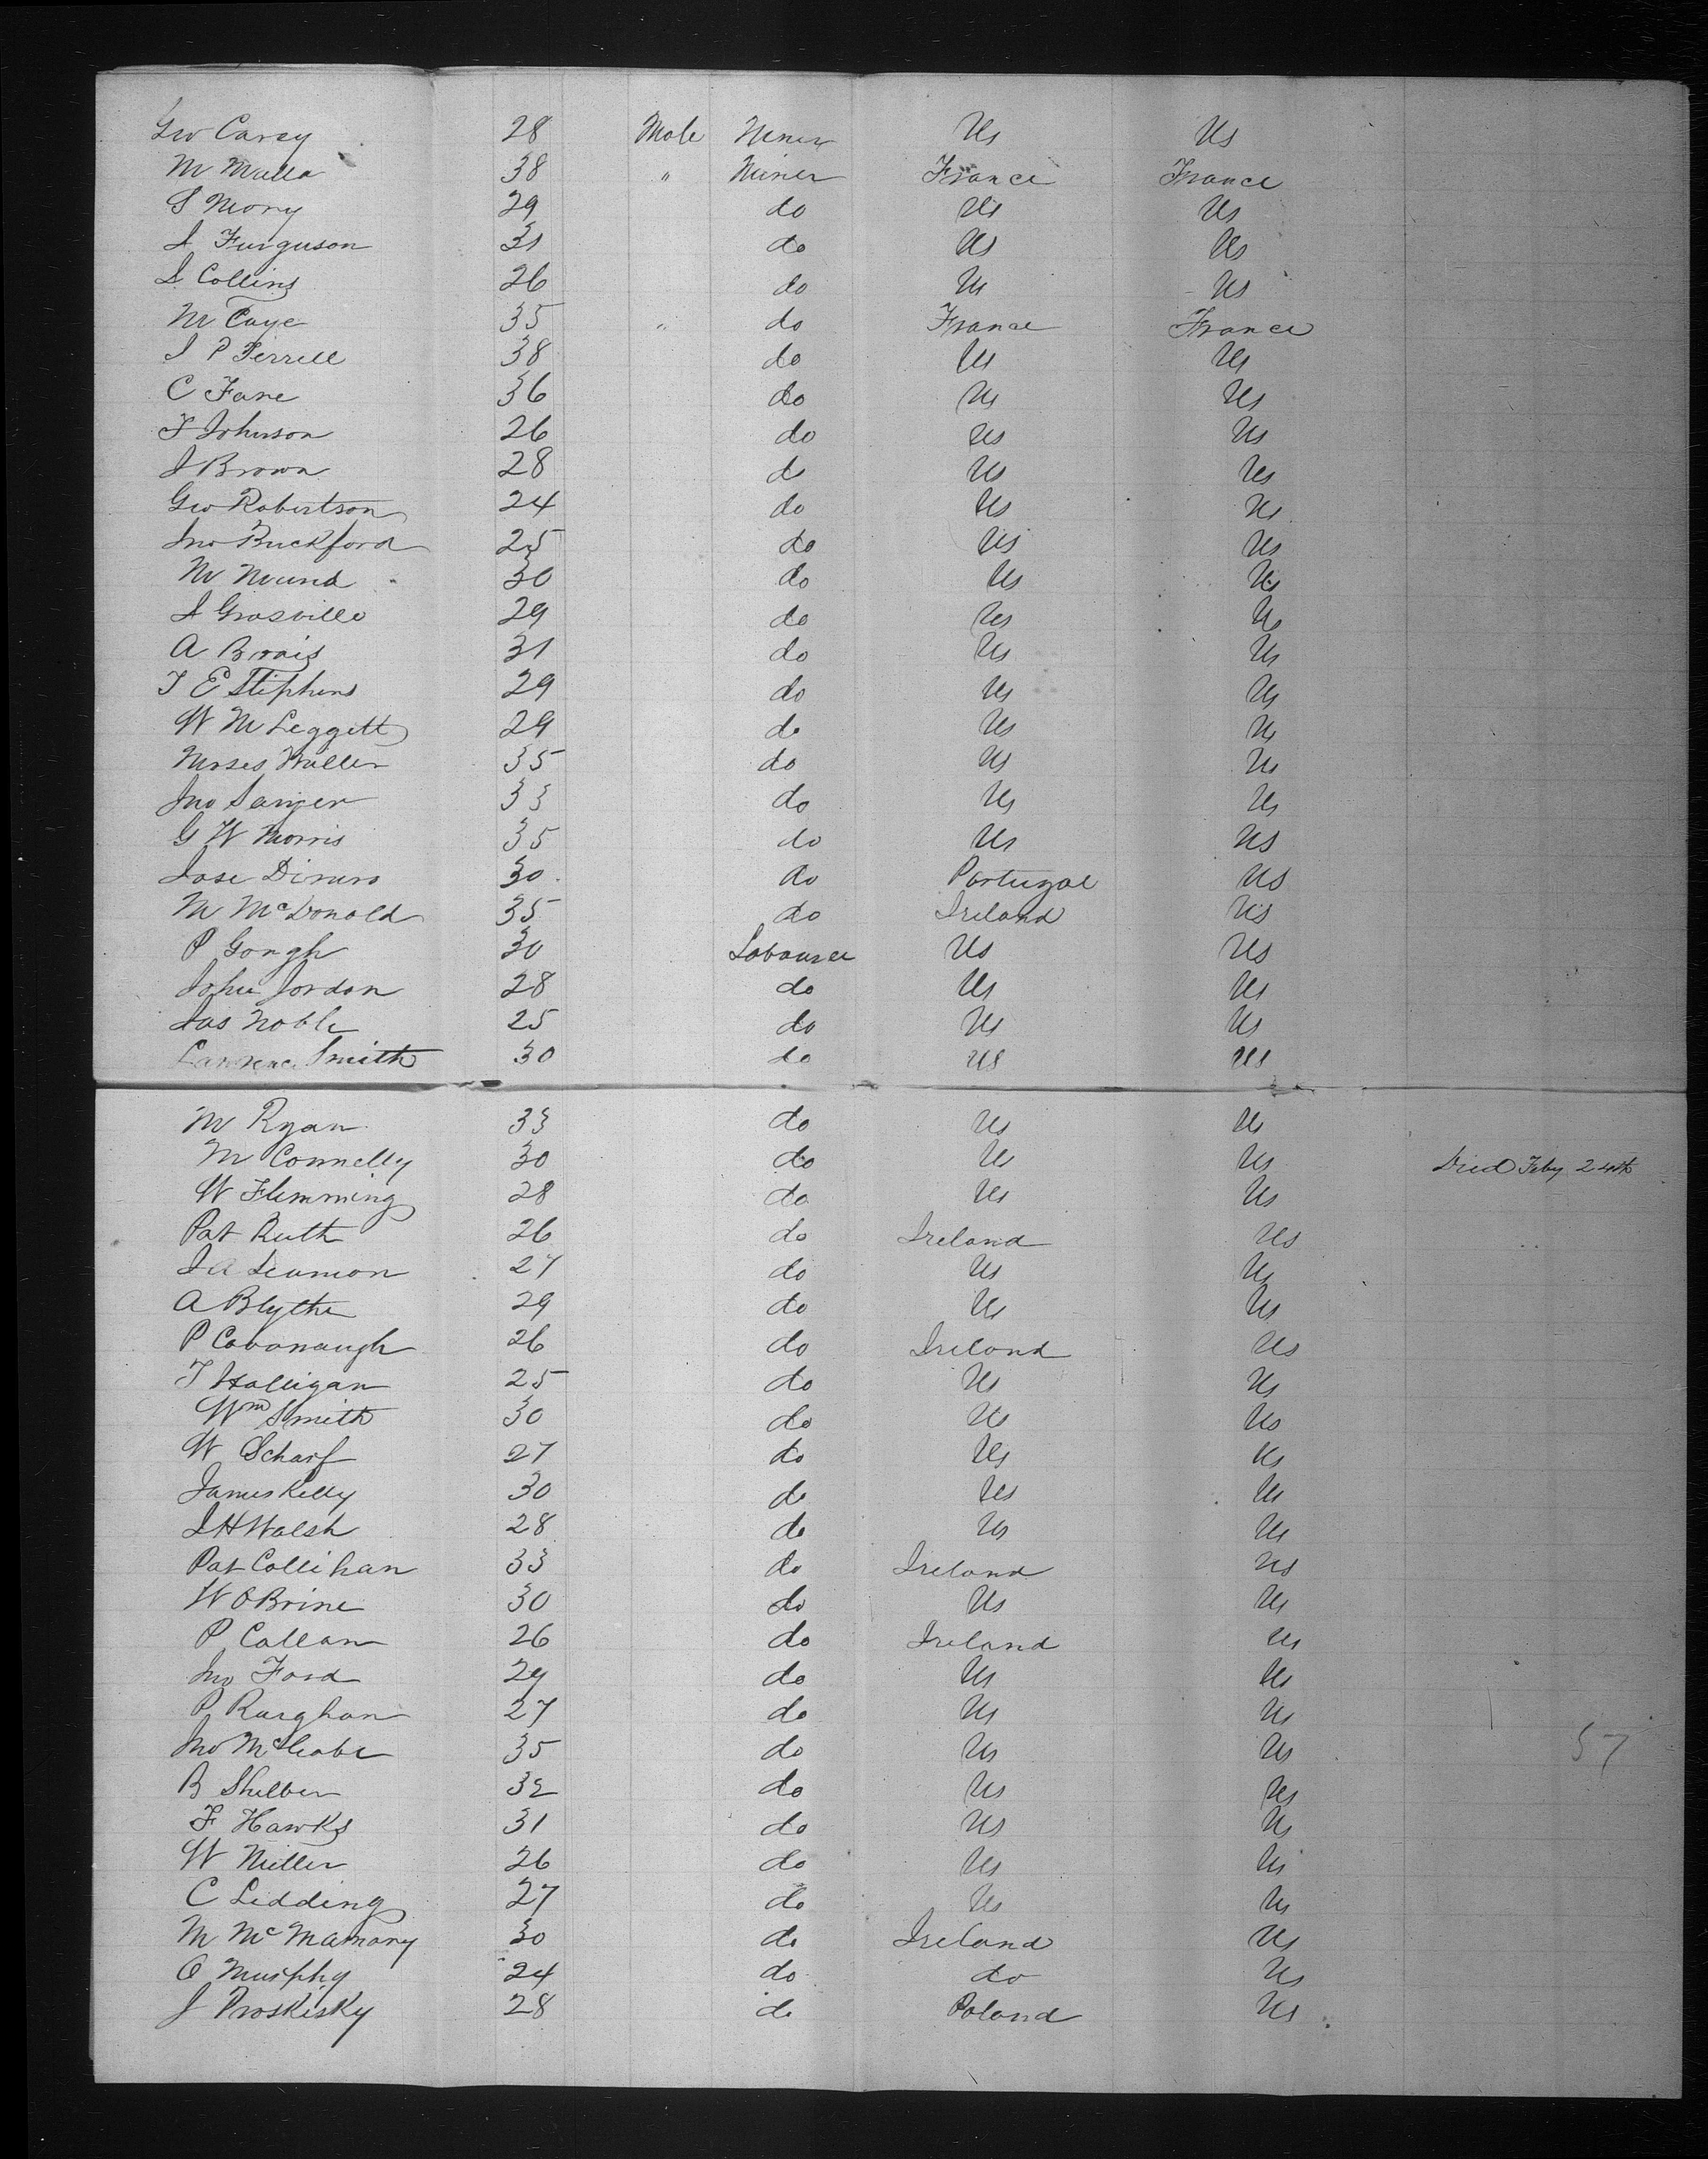 Geo Carey 28 Male Miner Us Us
M Mulla 38 " Miner France France
S Mory 29 do Us Us
J Furguson 31 do Us Us
D Collins 26 do Us Us
M Caye 35 " do France France
J P Ferrell 38 do Us Us
C Fane 36 do Us Us
F Johnson 26 do Us Us
J Brown 28 do Us Us
Geo Robertson 24 do Us Us
Jno Buckford 25 do Us Us
M Mund 30 do Us Us
J Grosville 29 do Us Us
A Brais 31 do Us Us
T E Stephens 29 do Us Us
W M Leggett 29 do Us Us
Moses Waller 35 do Us Us
Jno Sanger 33 do Us Us
G W Morris 35 do Us Us
Jose 30 do Portugal Us
M McDonald 35 do Ireland Us
P Gongh 30 Labourer Us Us
John Jordan 28 do Us Us
Jas Noble 25 do Us Us
Lawrence Smith 30 do Us Us
M Ryan 33 do Us Us
M Connelly 30 do Us Us Died Feby 24th
W Flemming 28 do Us Us
Pat Ruth 26 do Ireland Us
J A Leamon 27 do Us Us
A Blythe 29 do Us Us
P Cavanaugh 26 do Ireland Us
T Halligan 25 do Us Us
Wm Smith 30 do Us Us
W Scharf 27 do Us Us
James Kelly 30 do Us Us
J H Walsh 28 do Us Us
Pat Collihan 33 do Ireland Us
W OBrine 30 do Us Us
P Callan 26 do Ireland Us
Jno Ford 29 do Us Us
P Raughan 27 do Us Us
Jno McCabe 35 do Us Us
57
B Shelber 32 do Us Us
F Hawks 31 do Us Us
W Miller 26 do Us Us
C Ledding 27 do Us Us
M McMamany 30 do Ireland Us
O Murphy 24 do do Us
J Proskisky 28 do Poland Us